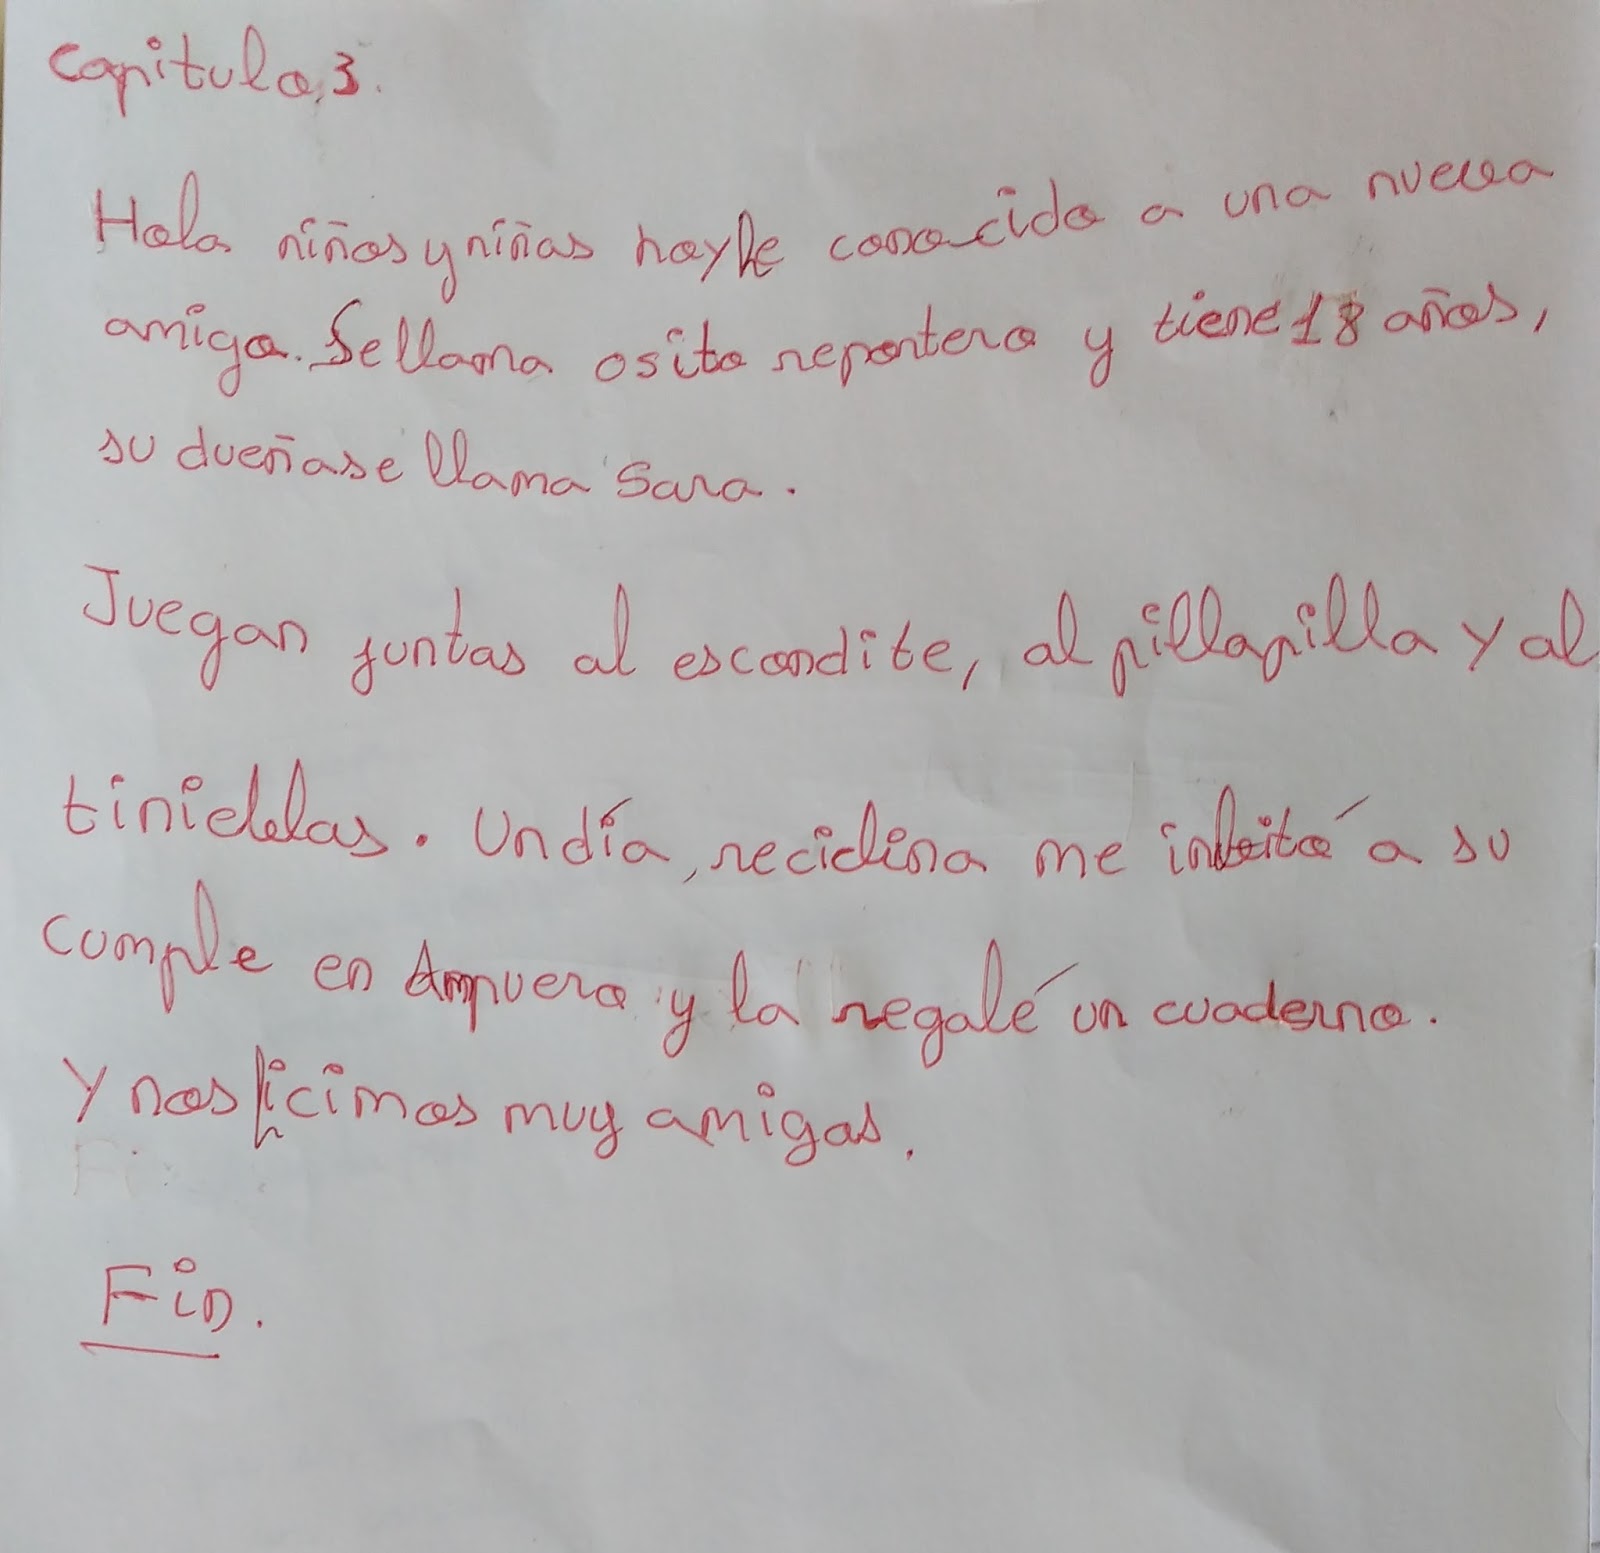 Capitulo 3.
Hola niños y niñas hoy he conocido a una nueva
amiga. Se llama osito reportero y tiene 18 años,
su dueña se llama Sara.
Juegan juntas al escondite, al pillapilla y al
tinieblas. Un día, reciclina me inbitó a su
cumple en Ampuero y la regalé un cuaderno.
Y nos hicimos muy amigas.
Fin.